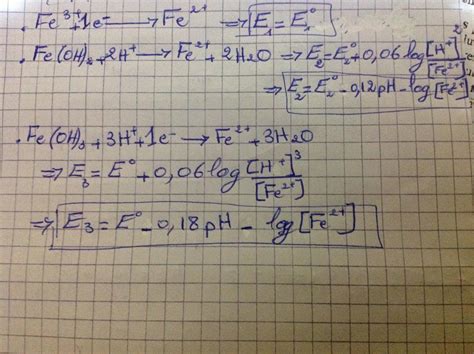 . Fe³⁺+1e⁻ ⟶ Fe²⁺ ⟹ E₁=E₁°
. Fe(OH)₂+2H⁺ ⟶ Fe²⁺+2H₂O ⟹ E₂=E₂°+0,06log [H⁺]²/[Fe²⁺]
⟹ E₂=E₂°-0,12pH-log[Fe²⁺]
. Fe(OH)₃+3H⁺+1e⁻ ⟶ Fe²⁺+3H₂O
⟹ E₃=E°+0,06log [H⁺]³/[Fe²⁺]
⟹ E₃=E°-0,18pH-log[Fe²⁺]